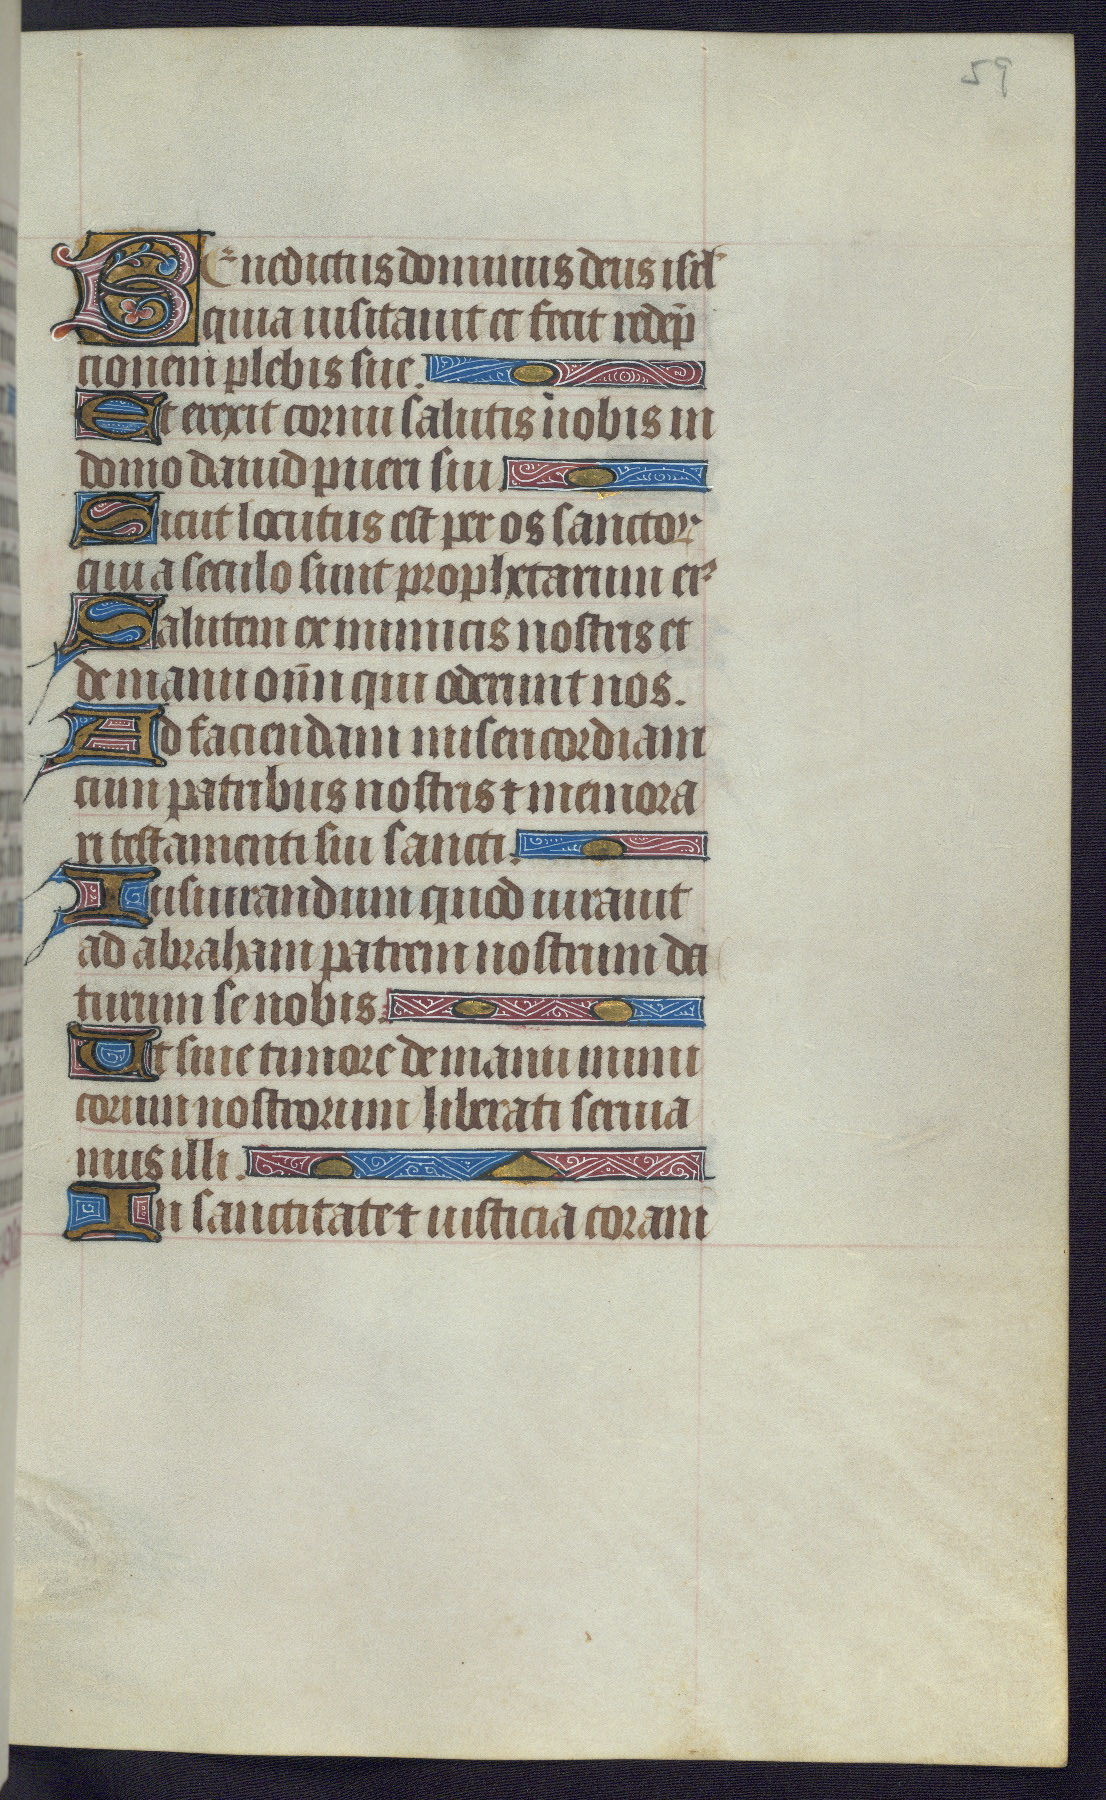 59
Benedictus dominus deus isrl'
quia uisitauit et fecit redep̄
cionem plebis sue.
Et erexit cornu salutis nobis in
domo dauid pueri sui.
Sicut locutus est per os sanctoꝝ
qui a seculo sunt prophetarum eiꝰ
Salutem ex inimicis nostris et
de manu oīn̄ qui oderunt nos.
Ad faciendam misericordiam
cum patribus nostris ⁊ memora
ri testamenti sui sancti.
Iusiurandum quod iurauit
ad abraham patrem nostrum da
turum se nobis.
Ut sine timore de manu inimi
corum nostrorum liberati seruia
mus illi.
In sanctitate ⁊ iusticia coram